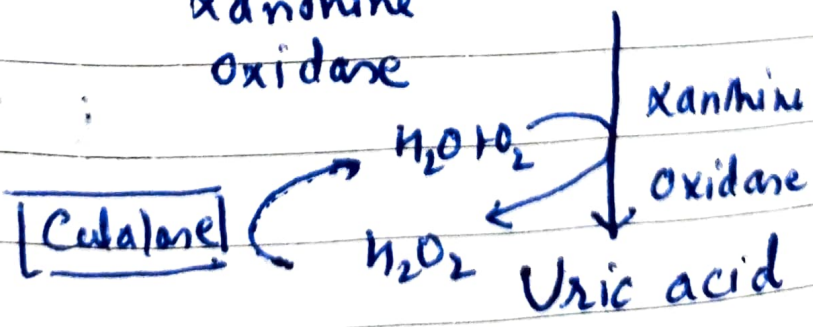 Xanthine
Oxidase
Xanthine
H₂O+O₂
Oxidase
Catalase
H₂O₂
Uric acid